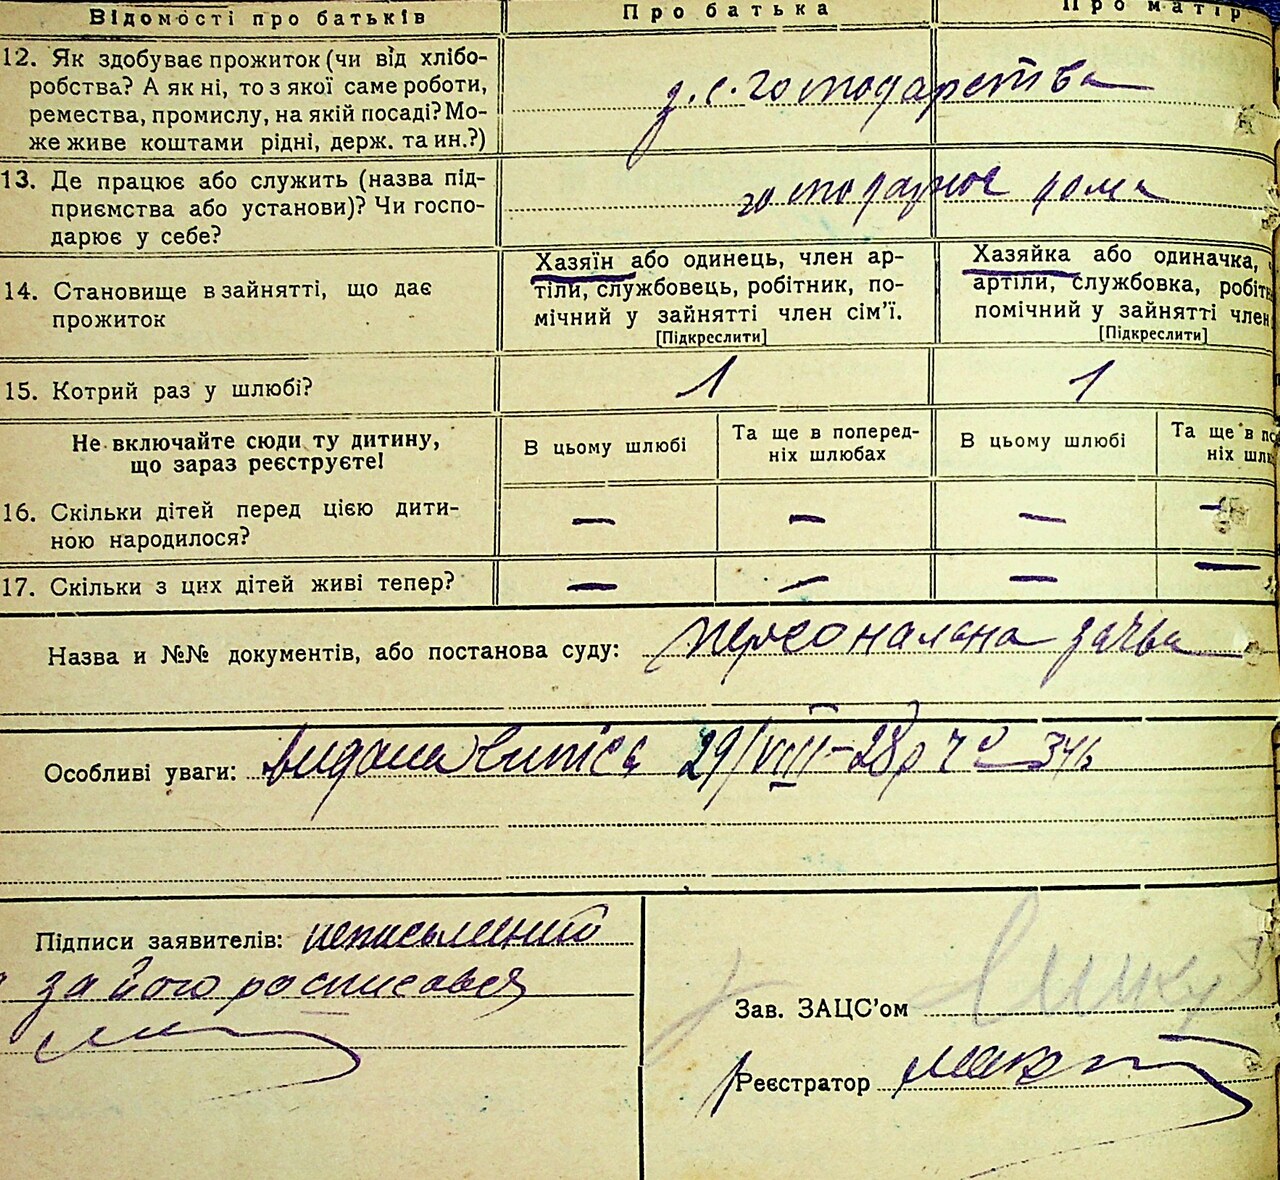 Відомості про батьків Про батька Про матір
12. Як здобуває прожиток (чи від хлібо-
робства? А як ні, то з якої саме роботи,
ремества, промислу, на якій посаді? Мо-
же живе коштами рідні, держ. та ин.?)
з. с. господарства
13. Де працює або служить (назва під-
приємства або установи)? Чи госпо-
дарює у себе?
дома
14. Становище в зайнятті, що дає
прожиток
Хазяїн або одинець, член ар-
тіли, службовець, робітник, по-
мічний у зайнятті член сім'ї.
[Підкреслити]
Хазяйка або одиначка,
артіли, службовка, робіт
помічний у зайнятті член
[Підкреслити]
15. Котрий раз у шлюбі? 1 1
Не включайте сюди ту дитину,
що зараз реєструєте!
В цьому шлюбі
Та ще в поперед-
ніх шлюбах
В цьому шлюбі
Та ще в по
ніх шлю
16. Скільки дітей перед цією дити-
ною народилося?
— — — —
17. Скільки з цих дітей живі тепер? — — — —
Назва и №№ документів, або постанова суду: персональна
Особливі уваги: видана витіс 29/VIII–28р
Підписи заявителів: неписьменний
за його росписався
Зав. ЗАЦС'ом
Реєстратор